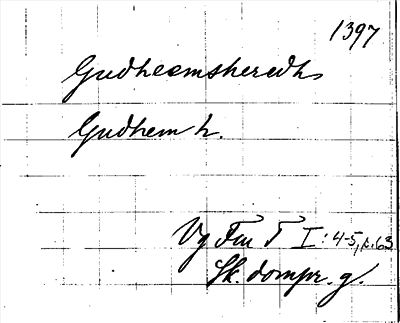 1397
Gudheemsheredh
Gudhem h.
Vg Fm T I: 4-5, p. 63
Sk. dompr. g.